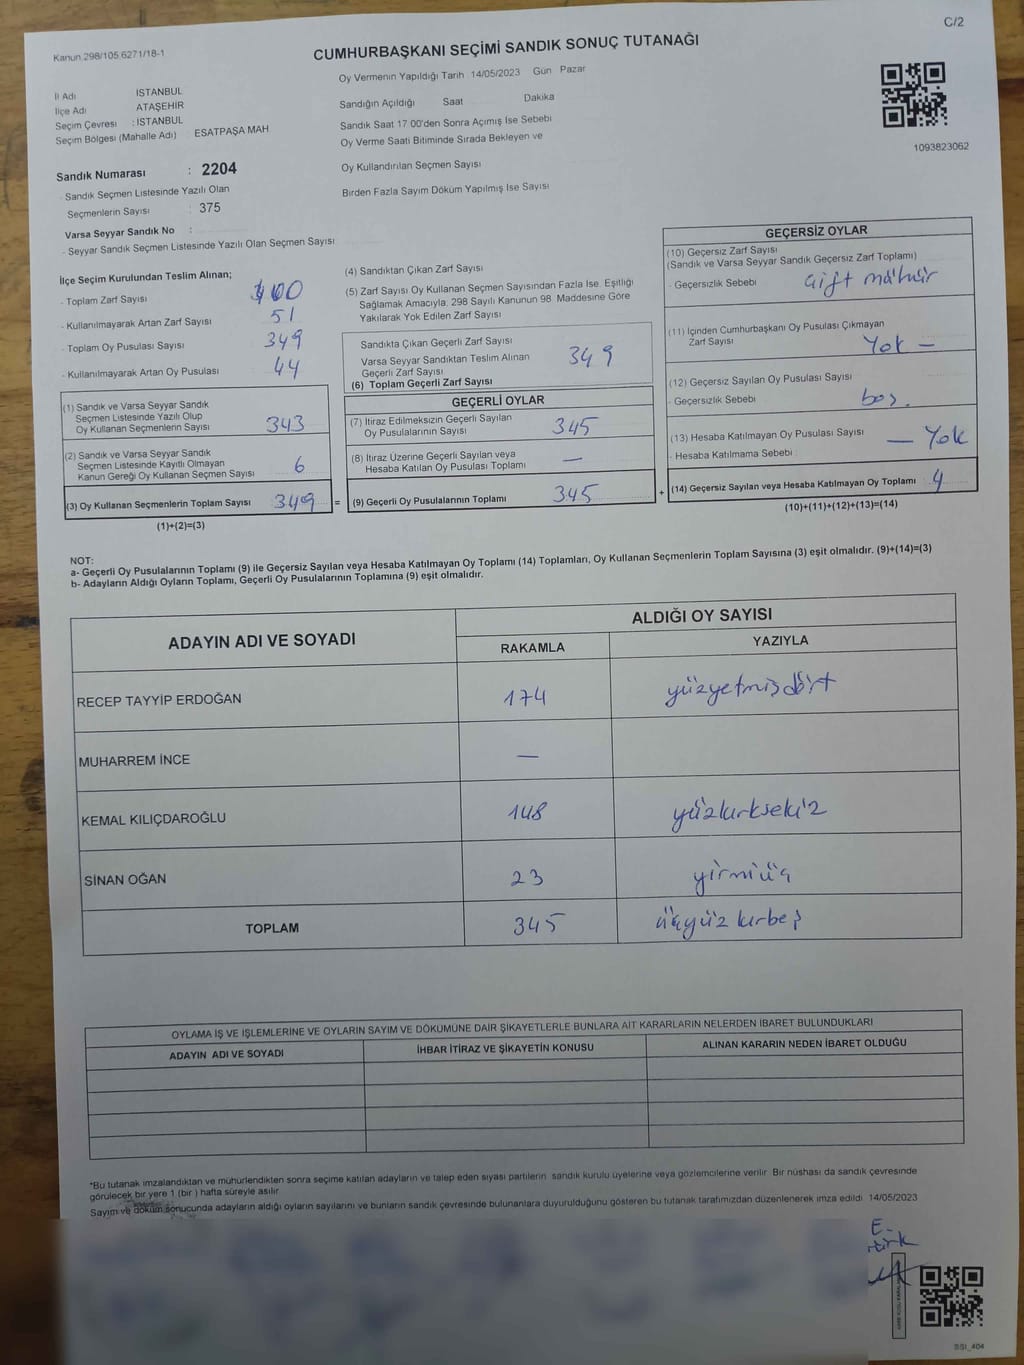 C/2
Kanun 298/105.6271/18-1
CUMHURBAŞKANI SEÇİMİ SANDIK SONUÇ TUTANAĞI
Oy Vermenin Yapıldığı Tarih 14/05/2023 Gün Pazar
İl Adı İSTANBUL
İlçe Adı ATAŞEHİR
Seçim Çevresi : İSTANBUL
Seçim Bölgesi (Mahalle Adı) ESATPAŞA MAH
Sandığın Açıldığı Saat Dakika
Sandık Saat 17 00'den Sonra Açımış İse Sebebi
Oy Verme Saati Bitiminde Sırada Bekleyen ve
Oy Kullandırılan Seçmen Sayısı
Birden Fazla Sayım Döküm Yapılmış İse Sayısı
1093823062
Sandık Numarası : 2204
- Sandık Seçmen Listesinde Yazılı Olan
Seçmenlerin Sayısı : 375
Varsa Seyyar Sandık No :
- Seyyar Sandık Seçmen Listesinde Yazılı Olan Seçmen Sayısı
İlçe Seçim Kurulundan Teslim Alınan;
- Toplam Zarf Sayısı 400
- Kullanılmayarak Artan Zarf Sayısı 51
- Toplam Oy Pusulası Sayısı 349
- Kullanılmayarak Artan Oy Pusulası 44
(1) Sandık ve Varsa Seyyar Sandık
Seçmen Listesinde Yazılı Olup
Oy Kullanan Seçmenlerin Sayısı 343
(2) Sandık ve Varsa Seyyar Sandık
Seçmen Listesinde Kayıtlı Olmayan
Kanun Gereği Oy Kullanan Seçmen Sayısı 6
(3) Oy Kullanan Seçmenlerin Toplam Sayısı 349 =
(1)+(2)=(3)
(4) Sandıktan Çıkan Zarf Sayısı
(5) Zarf Sayısı Oy Kullanan Seçmen Sayısından Fazla İse. Eşitliği
Sağlamak Amacıyla. 298 Sayılı Kanunun 98 Maddesine Göre
Yakılarak Yok Edilen Zarf Sayısı
Sandıkta Çıkan Geçerli Zarf Sayısı
Varsa Seyyar Sandıktan Teslim Alınan
Geçerli Zarf Sayısı 349
(6) Toplam Geçerli Zarf Sayısı
GEÇERLİ OYLAR
(7) İtiraz Edilmeksizin Geçerli Sayılan
Oy Pusulalarının Sayısı 345
(8) İtiraz Üzerine Geçerli Sayılan veya
Hesaba Katılan Oy Pusulası Toplamı —
(9) Geçerli Oy Pusulalarının Toplamı 345 +
GEÇERSİZ OYLAR
(10) Geçersiz Zarf Sayısı
(Sandık ve Varsa Seyyar Sandık Geçersiz Zarf Toplamı)
- Geçersizlik Sebebi çift mühür
(11) İçinden Cumhurbaşkanı Oy Pusulası Çıkmayan
Zarf Sayısı Yok —
(12) Geçersiz Sayılan Oy Pusulası Sayısı
- Geçersizlik Sebebi boş.
(13) Hesaba Katılmayan Oy Pusulası Sayısı — Yok
- Hesaba Katılmama Sebebi
(14) Geçersiz Sayılan veya Hesaba Katılmayan Oy Toplamı 4
(10)+(11)+(12)+(13)=(14)
NOT:
a- Geçerli Oy Pusulalarının Toplamı (9) ile Geçersiz Sayılan veya Hesaba Katılmayan Oy Toplamı (14) Toplamları, Oy Kullanan Seçmenlerin Toplam Sayısına (3) eşit olmalıdır. (9)+(14)=(3)
b- Adayların Aldığı Oyların Toplamı, Geçerli Oy Pusulalarının Toplamına (9) eşit olmalıdır.
ADAYIN ADI VE SOYADI ALDIĞI OY SAYISI
RAKAMLA YAZIYLA
RECEP TAYYİP ERDOĞAN 174 yüzyetmişdört
MUHARREM İNCE —
KEMAL KILIÇDAROĞLU 148 yüzkırksekiz
SİNAN OĞAN 23 yirmiüç
TOPLAM 345 üçyüz kırbeş
OYLAMA İŞ VE İŞLEMLERİNE VE OYLARIN SAYIM VE DÖKÜMÜNE DAİR ŞİKAYETLERLE BUNLARA AİT KARARLARIN NELERDEN İBARET BULUNDUKLARI
ADAYIN ADI VE SOYADI İHBAR İTİRAZ VE ŞİKAYETİN KONUSU ALINAN KARARIN NEDEN İBARET OLDUĞU
*Bu tutanak imzalandıktan ve mühürlendikten sonra seçime katılan adayların ve talep eden siyasi partilerin sandık kurulu üyelerine veya gözlemcilerine verilir. Bir nüshası da sandık çevresinde
görülecek bir yere 1 (bir ) hafta süreyle asılır
Sayım ve döküm sonucunda adayların aldığı oyların sayılarını ve bunların sandık çevresinde bulunanlara duyurulduğunu gösteren bu tutanak tarafımızdan düzenlenerek imza edildi. 14/05/2023
E.
SSI_404